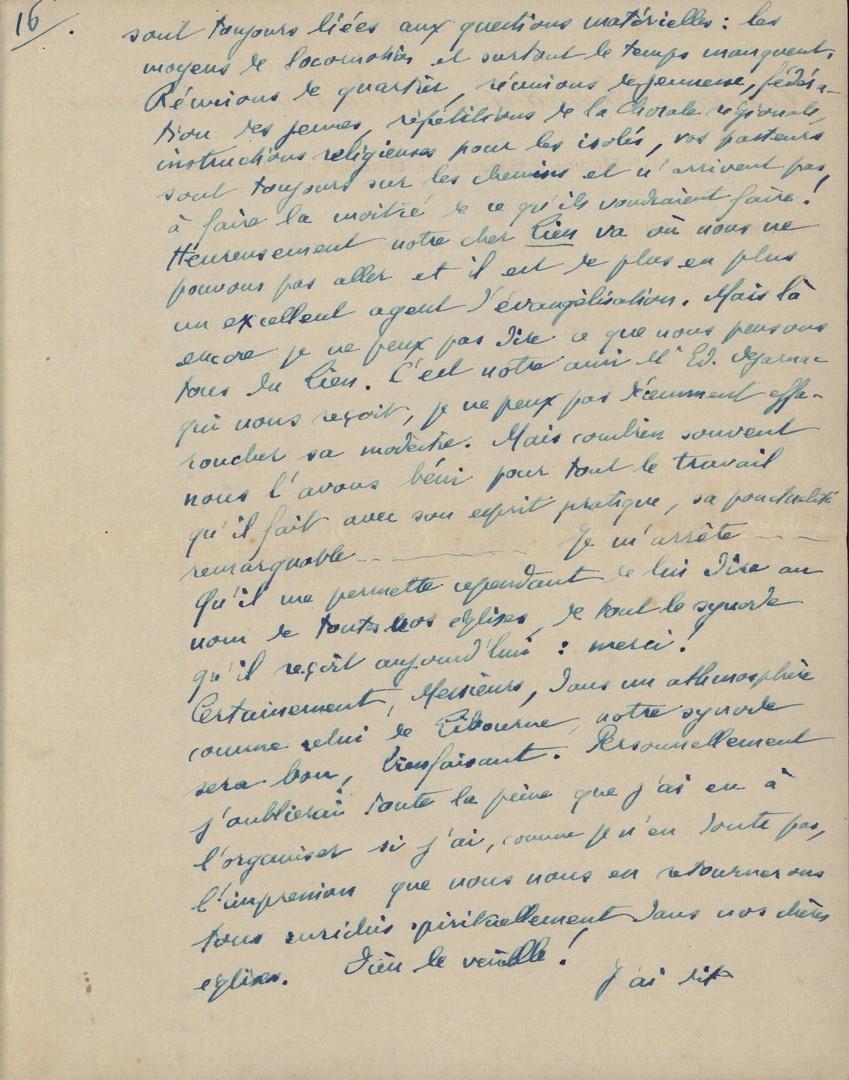 16
sont toujours liées aux questions matérielles : les
moyens de locomotion et surtout le temps manquent.
Réunions de quartier, réunions de jeunesse, fédéra-
tion des jeunes, répétitions de la chorale régionale,
instructions religieuses pour les isolés, vos pasteurs
sont toujours sur les chemins et n'arrivent pas
à faire la moitié de ce qu'ils voudraient faire !
Heureusement notre cher Lien va où nous ne
pouvons pas aller et il est de plus en plus
un excellent agent d'évangélisation. Mais là
encore je ne peux pas dire ce que nous pensons
tous du Lien. C'est notre ami Mr Ed.
qui nous reçoit, je ne peux pas décemment effa-
roucher sa modestie. Mais combien souvent
nous l'avons béni pour tout le travail
qu'il fait avec son esprit pratique, sa ponctualité
remarquable ---------- Je m'arrête ----
Qu'il me permette cependant de lui dire au
nom de toutes nos églises, de tout le synode
qu'il reçoit aujourd'hui : merci !
Certainement, Messieurs, dans un athmosphère
comme celui de Libourne, notre synode
sera bon, bienfaisant. Personnellement
j'oublierai toute la peine que j'ai eu à
l'organiser si j'ai, comme je n'en doute pas,
l'impression que nous nous en retournerons
tous enrichis spirituellement dans nos chères
églises. Dieu le veuille !
J'ai dit